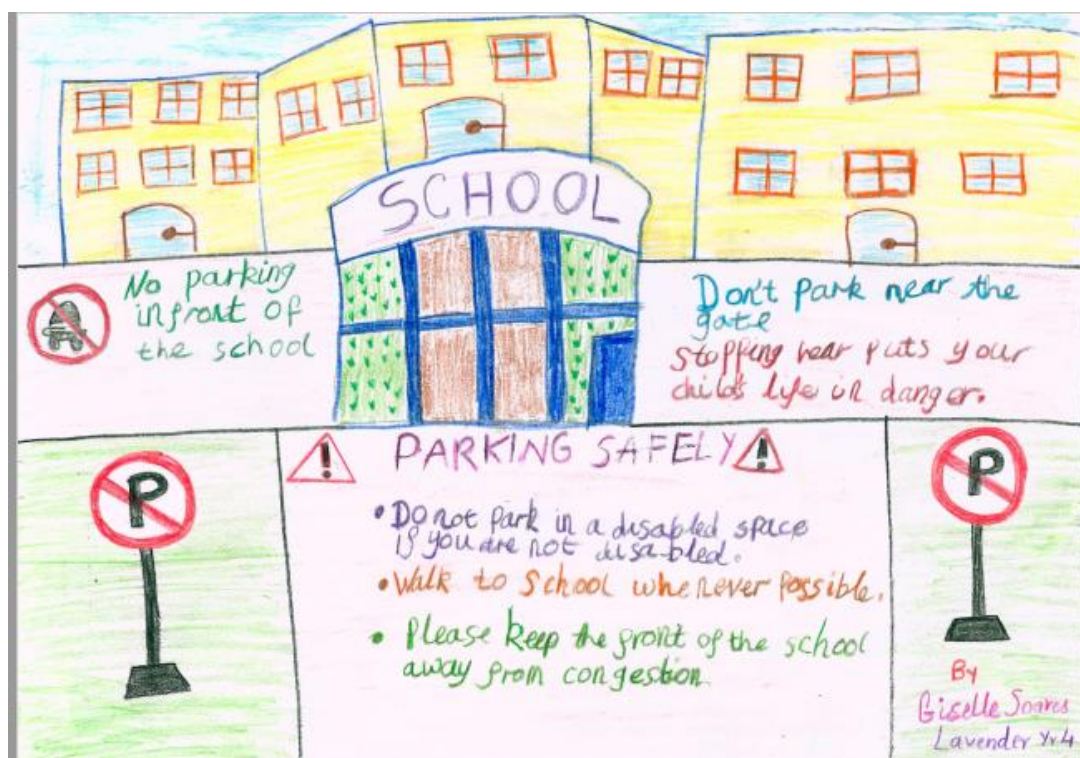 SCHOOL
No parking
infront of
the school
Don't park near the
gate
stopping near puts your
child's life in danger.
PARKING SAFELY
• Do not park in a disabled space
if you are not disabled.
• Walk to school whenever possible.
• Please keep the front of the school
away from congestion.
P
P
By
Giselle Soares
Lavender Yr4